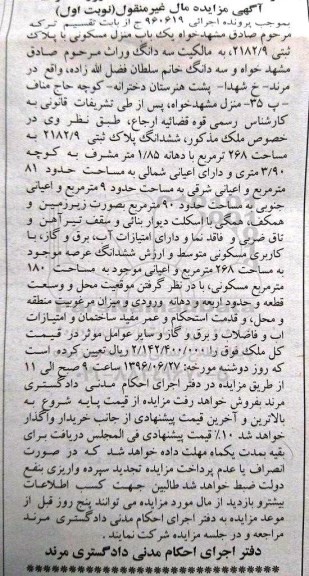 آگهی مزایده مال غیرمنقول(نوبت اول)
بموجب پرونده اجرائی ۹۶۰۶۱۹ ح از بابت تقسیم ترکه
مرحوم صادق مشهدخواه یک باب منزل مسکونی با پلاک
ثبتی ۲۱۸۲/۹، به مالکیت سه دانگ وراث مرحوم صادق
مشهد خواه و سه دانگ خانم سلطان فضل اله زاده، واقع در
مرند- خ شهدا- پشت هنرستان دخترانه- کوچه حاج مناف
- پ ۳۵- منزل مشهدخواه، پس از طی تشریفات قانونی به
کارشناس رسمی قوه قضائیه ارجاع، طبق نظر وی در
خصوص ملک مذکور، ششدانگ پلاک ثبتی ۲۱۸۲/۹ به
مساحت ۲۶۸ مترمربع با دهانه ۱/۸۵ متر مشرف به کوچه
۳/۹۰ متری و دارای اعیانی شمالی به مساحت حدود ۸۱
مترمربع و اعیانی شرقی به مساحت حدود ۹ مترمربع و اعیانی
جنوبی حدود ۹۰ مترمربع بصورت زیرزمین و
همکف، همگی با اسکلت دیوار بنائی و سقف تیرآهن و
تاق ضربی و فاقد نما و دارای امتیازات آب، برق و گاز، با
کاربری مسکونی متوسط و ارزش ششدانگ عرصه موجود
به مساحت ۲۶۸ مترمربع و اعیانی موجود به مساحت ۱۸۰
مترمربع مسکونی، با در نظر گرفتن موقعیت محل و وسعت
قطعه و حدود اربعه و دهانه ورودی و میزان مرغوبیت منطقه
و محل، و قدمت استحکام و عمر مفید ساختمان و امتیازات
آب و فاضلاب و برق و گاز و سایر عوامل موثر در قیمت
کل ملک فوق را ۲/۱۴۲/۴۰۰/۰۰۰ ریال تعیین کرده است
که روز دوشنبه مورخه: ۱۳۹۶/۰۶/۲۷ ساعت ۹ صبح الی ۱۱
از طریق مزایده در دفتر اجرای احکام مدنی دادگستری
مرند بفروش خواهد رفت مزایده از قیمت پایه شروع به
بالاترین و آخرین قیمت پیشنهادی از جانب خریدار واگذار
خواهد شد ۱۰٪ قیمت پیشنهادی فی المجلس دریافت برای
بقیه بمدت یکماه مهلت داده خواهد شد که در صورت
انصراف یا عدم پرداخت مزایده تجدید سپرده واریزی بنفع
دولت ضبط خواهد شد طالبین جهت کسب اطلاعات
بیشترو بازدید از مال مورد مزایده می توانند پنج روز قبل از
موعد مزایده به دفتر اجرای احکام مدنی دادگستری مرند
مراجعه و در جلسه مزایده شرکت نمایند .
دفتر اجرای احکام مدنی دادگستری مرند